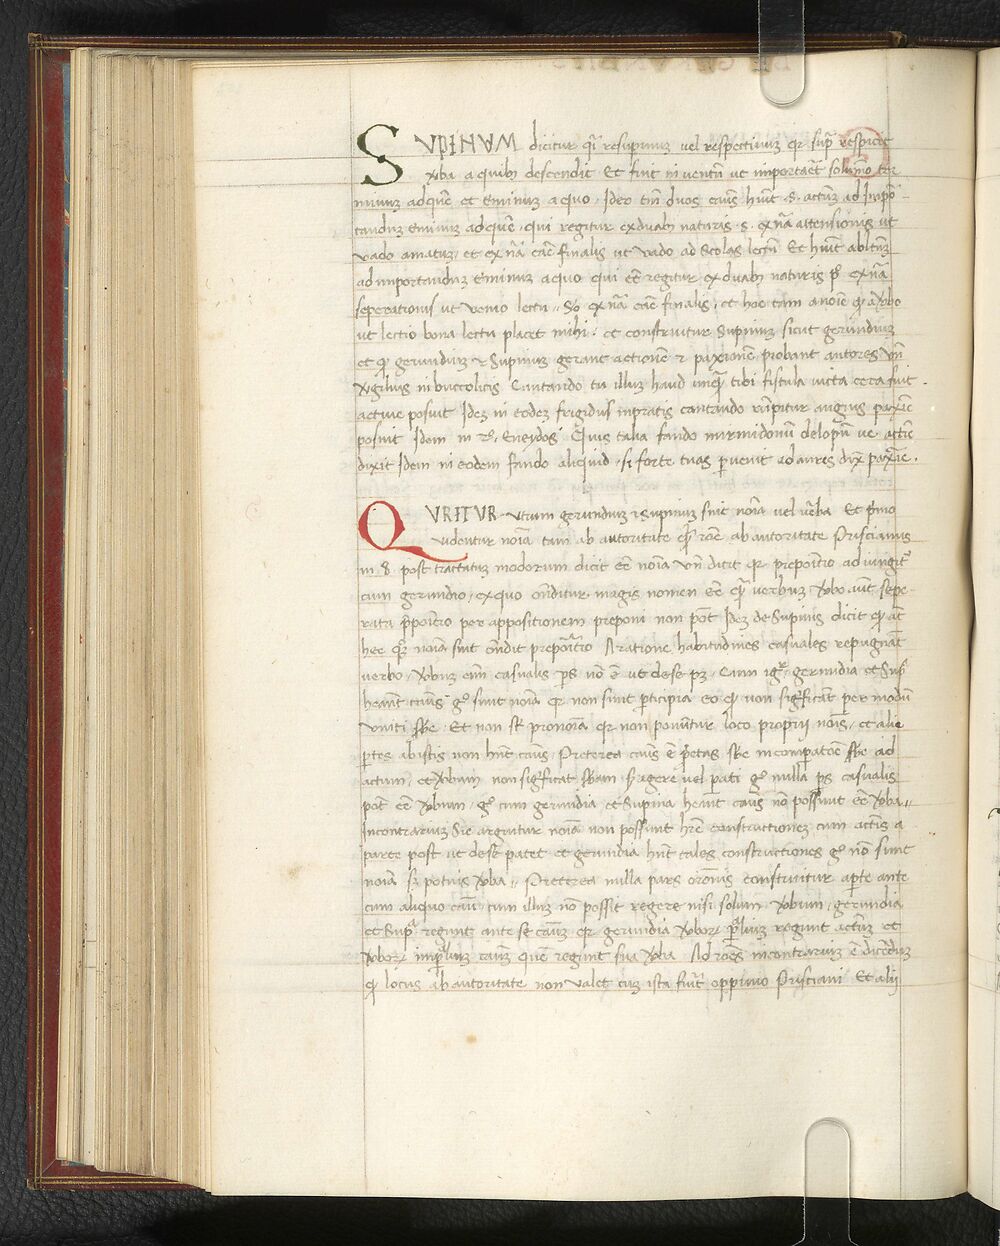 SUPINUM dicitur q̃i resupinuꝫ vel respectiuuꝫ qr sup̃ respicit
v̾ba a quibꝫ descendit Et fuit inuentũ ut importaret̃ solum̃o ter
minuꝫ adquẽ et t̾minuꝫ a quo. Ideo tm̃ duos casus hñt .s. actm̃ ad impo-
tanduꝫ t̾minuꝫ adquẽ, qui regitur ex duabꝫ naturis .s. ex nã attensionis ut
vado amatuꝫ, et ex nã cãe finalis ut vado ad scolas lectũ Et hñt ablt̃m
ad importanduꝫ t̾minuꝫ a quo qui eẽ regitur ex duabꝫ naturis p̾ ex nã
seperationis ut venio lectu, So ex nã cãe finalis, et hoc tam a noĩe qꝫ a v̾bo
ut lectio bona lectu placet mihi. et construitur Supinuꝫ sicut gerundiuꝫ
et qꝫ gerundiuꝫ & Supinuꝫ gerant actionẽ & paxionẽ probant autores Vñ
v̾gilius in buccolicis Cantando tu illuꝫ haud unqꝫ tibi fistula iuncta cera fuit .
actiue posuit Ideꝫ in eodeꝫ frigidus in pratis cantando rũpitur anguis paxiẽ
posuit Idem in 2º. Eneydos Quis talia fando mirmidonũ delopũ ve. actiẽ
dixit Idem in eodem fando aliquid, si forte tuas p̱uenit ad aures dix̃ paxiẽ.
QVRITVR Vtrum gerundiuꝫ & Supinuꝫ sint noĩa vel v̾ba Et primo
videntur noĩa tam ab autoritate qꝫ rõe ab autoritate Priscianus
in .8. post tractatuꝫ modorum dicit eẽ noĩa Vñ dicit qr prepoitio ad iungit̃
cum gerundio, ex quo oñditur magis nomen eẽ qꝫ verbuꝫ v̾bo aut̃ sepe-
rata p̃poitio per appositionem preponi non põt Ideꝫ de Supinis dicit qꝫ at̃
hec qꝫ noĩa sint oñdit prepoitio A ratione habitudines casuales repugnãt
verbo, v̾buꝫ eim̃ casualis p̃s nõ ẽ ut de se pꝫ. Cum igr̃ gerundia et Sup̃
heant casus gº sunt noĩa qr non sunt p̱ticipia eo qꝫ non significãt per modũ
vniti sbẽ. Et non st̃ pronoĩa qr non ponũtur loco proprii noĩs, et alie
p̱tes ab istis non hñt casus, Preterea casus ẽ p̾etas sbẽ in comparatõe sbẽ ad
actum, et v̾bum non significat sbãm sꝫ agere vel pati gº nulla p̃s casualis
põt eẽ v̾bum, gº cum gerundia et Supina heant casus nõ possunt eẽ v̾ba,,
Incontrariuꝫ sic arguitur noĩa non possunt hr̃e constructioneꝫ cum actiũs a
parte post, ut de se patet et gerundia hñt tales constructiones gº nõ sunt
noĩa sꝫ potius v̾ba,, Preterea nulla pars oroñis construitur a p̱te ante
cum aliquo casu, cum illuꝫ nõ possit regere nisi solum v̾bum, gerundia
et Sup̃ regunt ante se casuꝫ qr gerundia v̾boꝝ p̃aliuꝫ regunt actm̃ et
v̾boꝝ imp̃aliuꝫ casuꝫ quẽ regunt sua v̾ba Ad rões incontrariuꝫ ẽ dicẽduꝫ
qꝫ locus ab autoritate non valet cuꝫ ista fuit̃ oppinio Prisciani Et alii